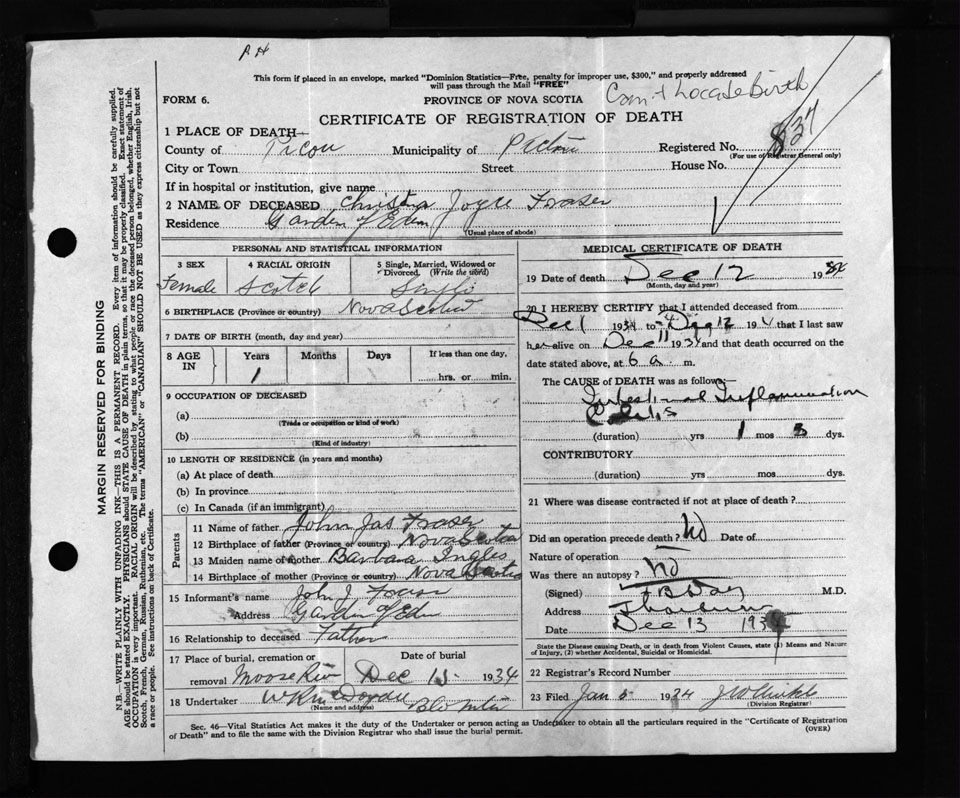 This form if placed in an envelope, marked "Dominion Statistics—Free, penalty for improper use, $300," and properly addressed
will pass through the Mail "FREE"
FORM 6.
PROVINCE OF NOVA SCOTIA
CERTIFICATE OF REGISTRATION OF DEATH
Can't Locate Birth
837
1 PLACE OF DEATH—
County of Picou Municipality of Pictou Registered No.
(For use of Registrar General only)
City or Town Street House No.
If in hospital or institution, give name
2 NAME OF DECEASED Christna Joyce Fraser
Residence Garden of Eden
(Usual place of abode)
PERSONAL AND STATISTICAL INFORMATION
3 SEX 4 RACIAL ORIGIN 5 Single, Married, Widowed or Divorced. (Write the word)
Female Scotch Single
6 BIRTHPLACE (Province or country) Nova Scotia
7 DATE OF BIRTH (month, day and year)
8 AGE IN Years Months Days If less than one day,
1 hrs. or min.
9 OCCUPATION OF DECEASED
(a)
(Trade or occupation or kind of work)
(b)
(Kind of industry)
10 LENGTH OF RESIDENCE (in years and months)
(a) At place of death
(b) In province
(c) In Canada (if an immigrant)
Parents
11 Name of father John Jas Fraser
12 Birthplace of father (Province or country) Nova Scotia
13 Maiden name of mother Barbara Ingles
14 Birthplace of mother (Province or country) Nova Scotia
15 Informant's name John J. Fraser
Address Garden of Eden
16 Relationship to deceased Father
17 Place of burial, cremation or removal Date of burial
Moose Riv Dec 15 1934
18 Undertaker
(Name and address)
MEDICAL CERTIFICATE OF DEATH
19 Date of death Dec 12 1934
(Month, day and year)
20 I HEREBY CERTIFY that I attended deceased from
Dec 1 1934 to Dec 12 1934 that I last saw
her alive on Dec 11 1934 and that death occurred on the
date stated above, at 6 a. m.
The CAUSE of DEATH was as follows:—
Intestinal Inflammation
Colitis
(duration) yrs 1 mos 3 dys.
CONTRIBUTORY
(duration) yrs mos dys.
21 Where was disease contracted if not at place of death?
Did an operation precede death? No Date of
Nature of operation
Was there an autopsy? No
(Signed) M.D.
Address Thorburn
Date Dec 13 1934
State the Disease causing Death, or in death from Violent Causes, state (1) Means and Nature
of Injury, (2) whether Accidental, Suicidal or Homicidal.
22 Registrar's Record Number
23 Filed Jan 5 1934
(Division Registrar)
Sec. 46—Vital Statistics Act makes it the duty of the Undertaker or person acting as Undertaker to obtain all the particulars required in the "Certificate of Registration
of Death" and to file the same with the Division Registrar who shall issue the burial permit.
(OVER)
MARGIN RESERVED FOR BINDING
N.B.—WRITE PLAINLY WITH UNFADING INK—THIS IS A PERMANENT RECORD. Every item of information should be carefully supplied.
AGE should be stated EXACTLY. PHYSICIANS should STATE CAUSE OF DEATH in plain terms, so that it may be properly classified. Exact statement of
OCCUPATION is very important. RACIAL ORIGIN will be described by stating to what people or race the deceased person belonged, whether English, Irish,
Scotch, French, German, Russian, Ruthenian, etc. The terms "AMERICAN" or "CANADIAN" SHOULD NOT BE USED as they express citizenship but not
a race or people. See instructions on back of Certificate.